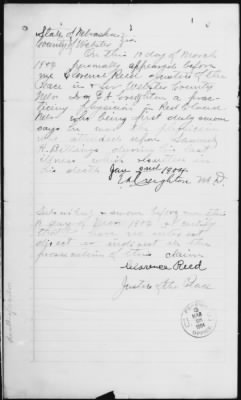 State of Nebraska
County of Webster } ss
On this 10 day of March
1904 personally appeared before
me Clarence Reed a Justice of the
Peace in & for Webster County
Nebr Dr E A Creighton a prac
ticing physician in Red Cloud
Nebr who being first duly sworn
says he was the physician
who attended upon Samuel
H. Bellings during his last
illness which resulted in
his death Jan 2nd 1904.
E A Creighton M D.
Subscribed & sworn before me this
10 day of March 1904 & I certify
that I have no interest
direct or indirect in the
prosecution of this claim
Clarence Reed
Justice of the Peace
MAR
1904